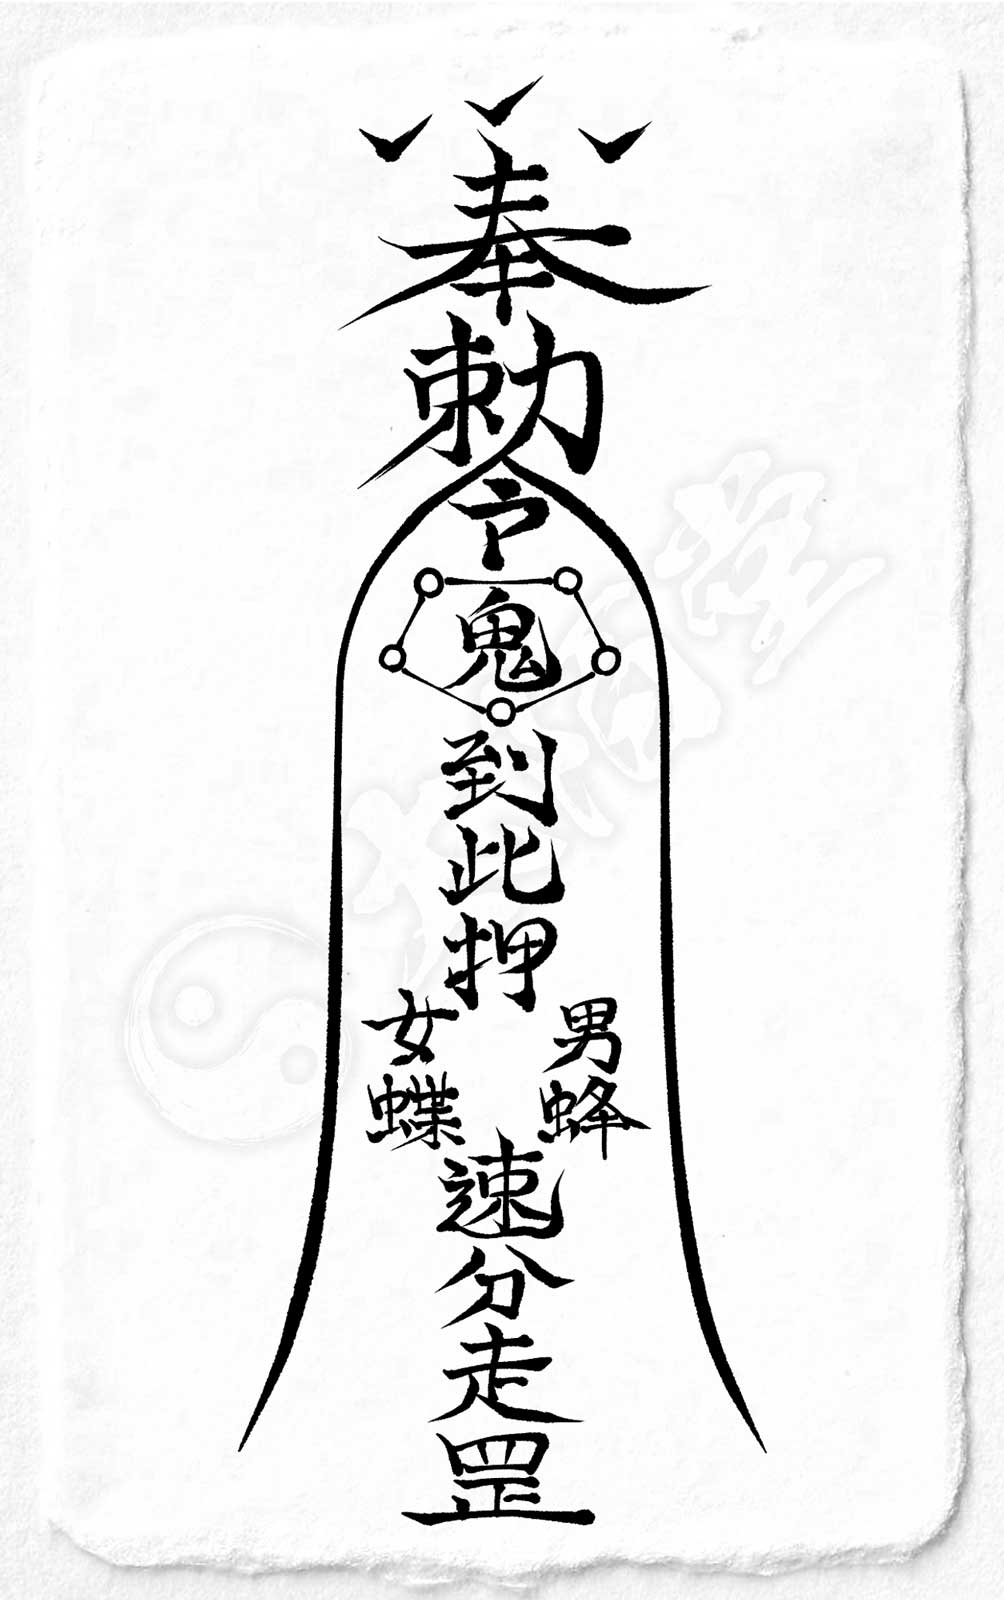 奉
勅
令
鬼
到
此
押
男蜂
女蝶
速
分
走
罡